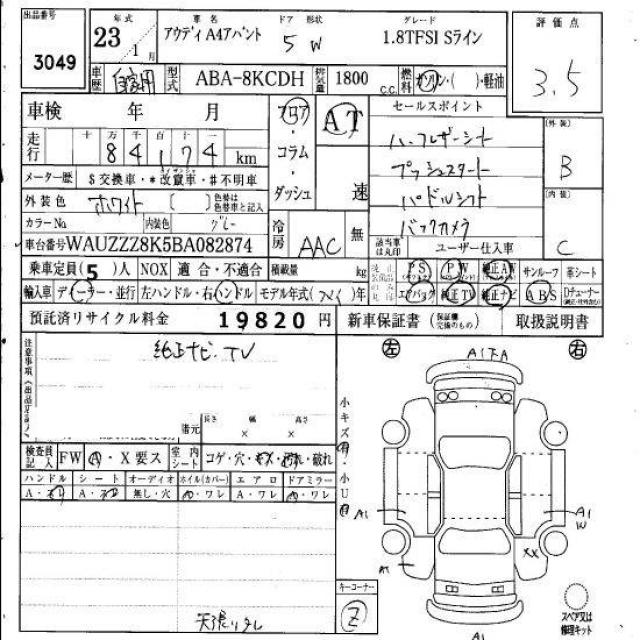 出品番号
3049
年式
23
1月
車名
アウディA4アバント
ドア 形状
5 W
グレード
1.8TFSI Sライン
評価点
3.5
車歴
自家用
型式
ABA-8KCDH
排気量
1800
c.c.
燃料
ガソリン・( )・軽油
車検 年 月
走行
十 万 千 百 十 一
84174 km
フロア・コラム・ダッシュ
AT
速
セールスポイント
ハーフレザーシート
プッシュスタート
パドルシフト
バックカメラ
外装
B
内装
C
メーター歴
$交換車・*改竄車・#不明車
外装色
ホワイト
( )
色替は色替車と記入
カラーNo
内装色
グレー
車台番号
WAUZZZ8K5BA082874
冷房
AAC
無
該当車は丸印
ユーザー仕入車
乗車定員(5)人
NOX 適合・不適合
積載量
kg
PS
PW
純正AW
サンルーフ
革シート
輸入車
ディーラー・並行
左ハンドル・右ハンドル
モデル年式( )年
エアバッグ
純正TV
純正ナビ
ABS
Dチューナー
預託済リサイクル料金
19820円
新車保証書
(保証欄交換のもの)
取扱説明書
注意事項
純正ナビ.TV
諸元
長さ 幅 高さ
× ×
検査員記入
FW
A・X要ス
室内シート
コゲ・穴・キズ・汚れ・破れ
ハンドル
シート
オーディオ
ホイル(カバー)
エアロ
ドアミラー
A・スリ
A・スリ
無し・穴
A・ワレ
A・ワレ
A・ワレ
天張りタレ
左
右
A1下A
小キズ有・小U有
A1
A1
W
XX
A1
キーコーナー
Z
スペア又は修理キット